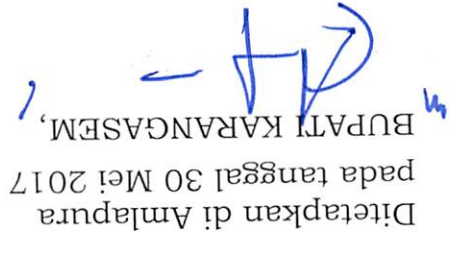 Ditetapkan di Amlapura
pada tanggal 30 Mei 2017
BUPATI KARANGASEM,